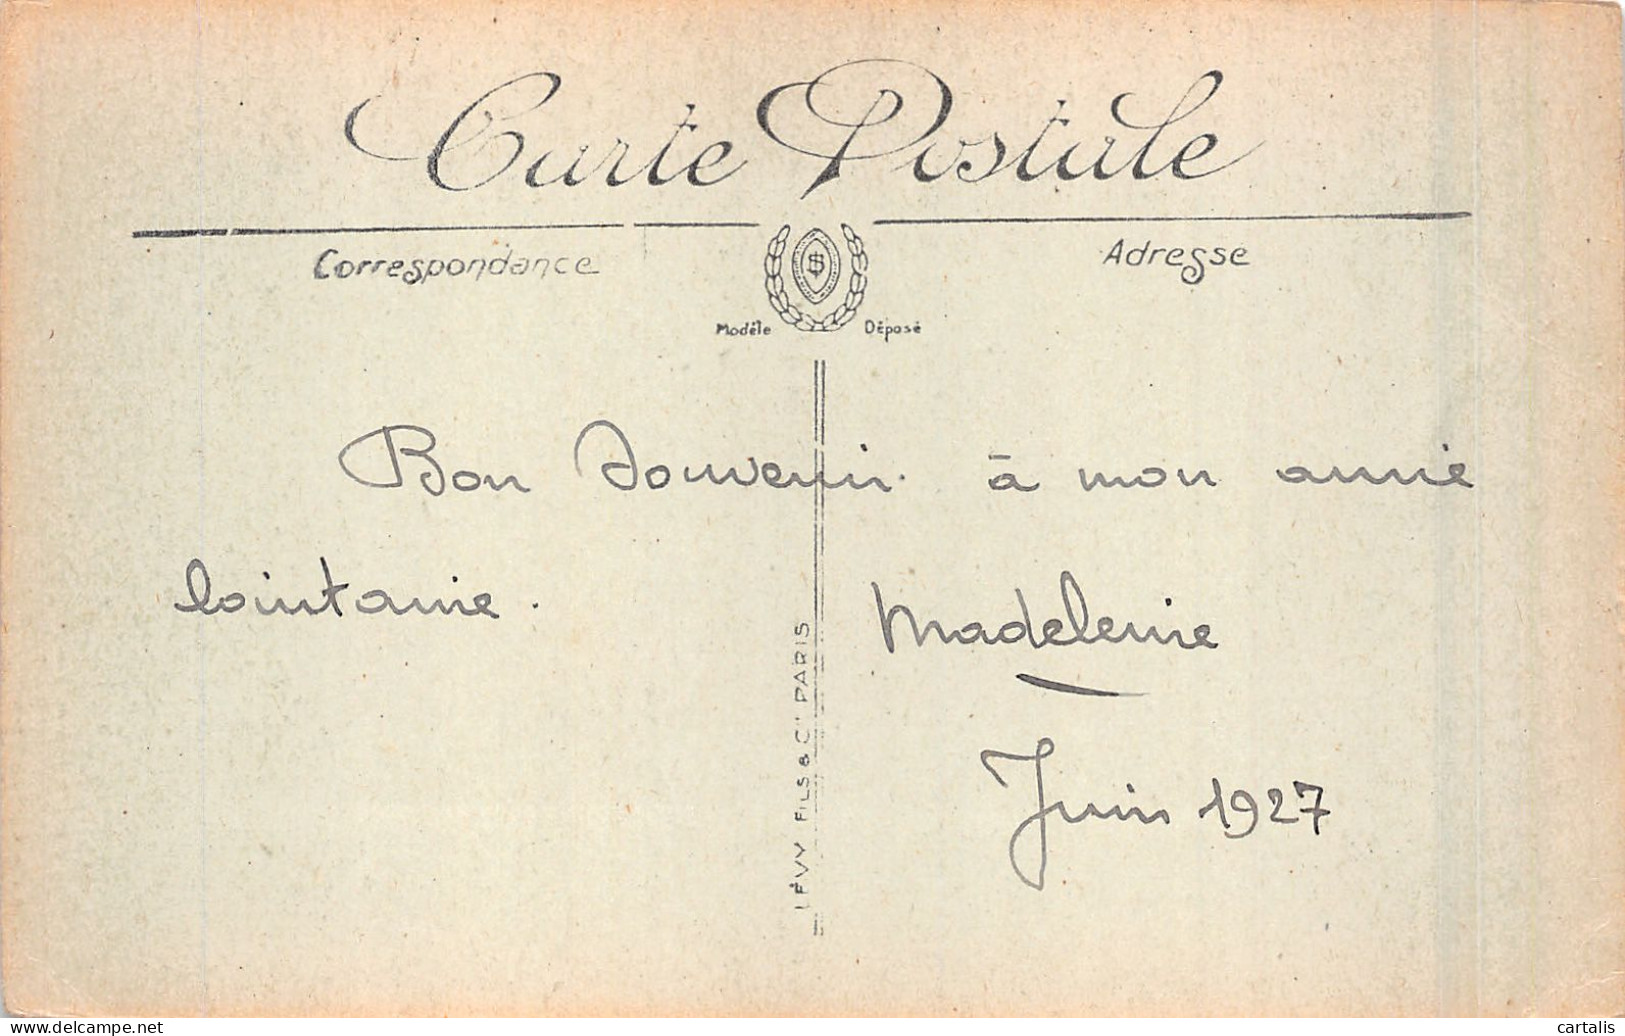 Carte Postale
Correspondance
Adresse
Modèle Déposé
Bon souvenir à mon amie
lointaine.
Madeleine
Juin 1927
LÉVY FILS & Cie PARIS
www.delcampe.net
cartalis